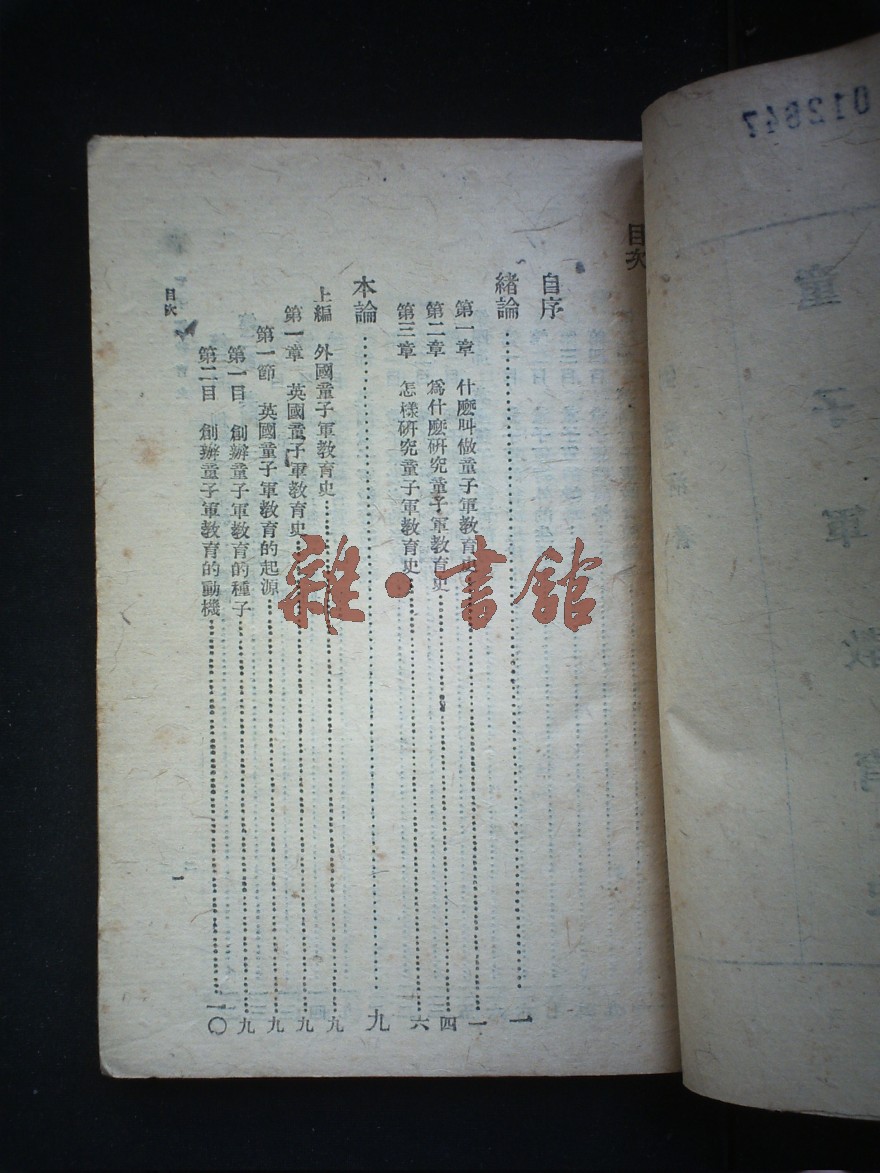 目次
自序
緒論……一
第一章 什麼叫做童子軍教育史……一
第二章 爲什麼研究童子軍教育史……四
第三章 怎樣研究童子軍教育史……六
本論……九
上編 外國童子軍教育史……九
第一章 英國童子軍教育史……九
第一節 英國童子軍教育的起源……九
第一目 創辦童子軍教育的種子……九
第二目 創辦童子軍教育的動機……一〇
目次
一
雜·書館
012647
童子軍教育史